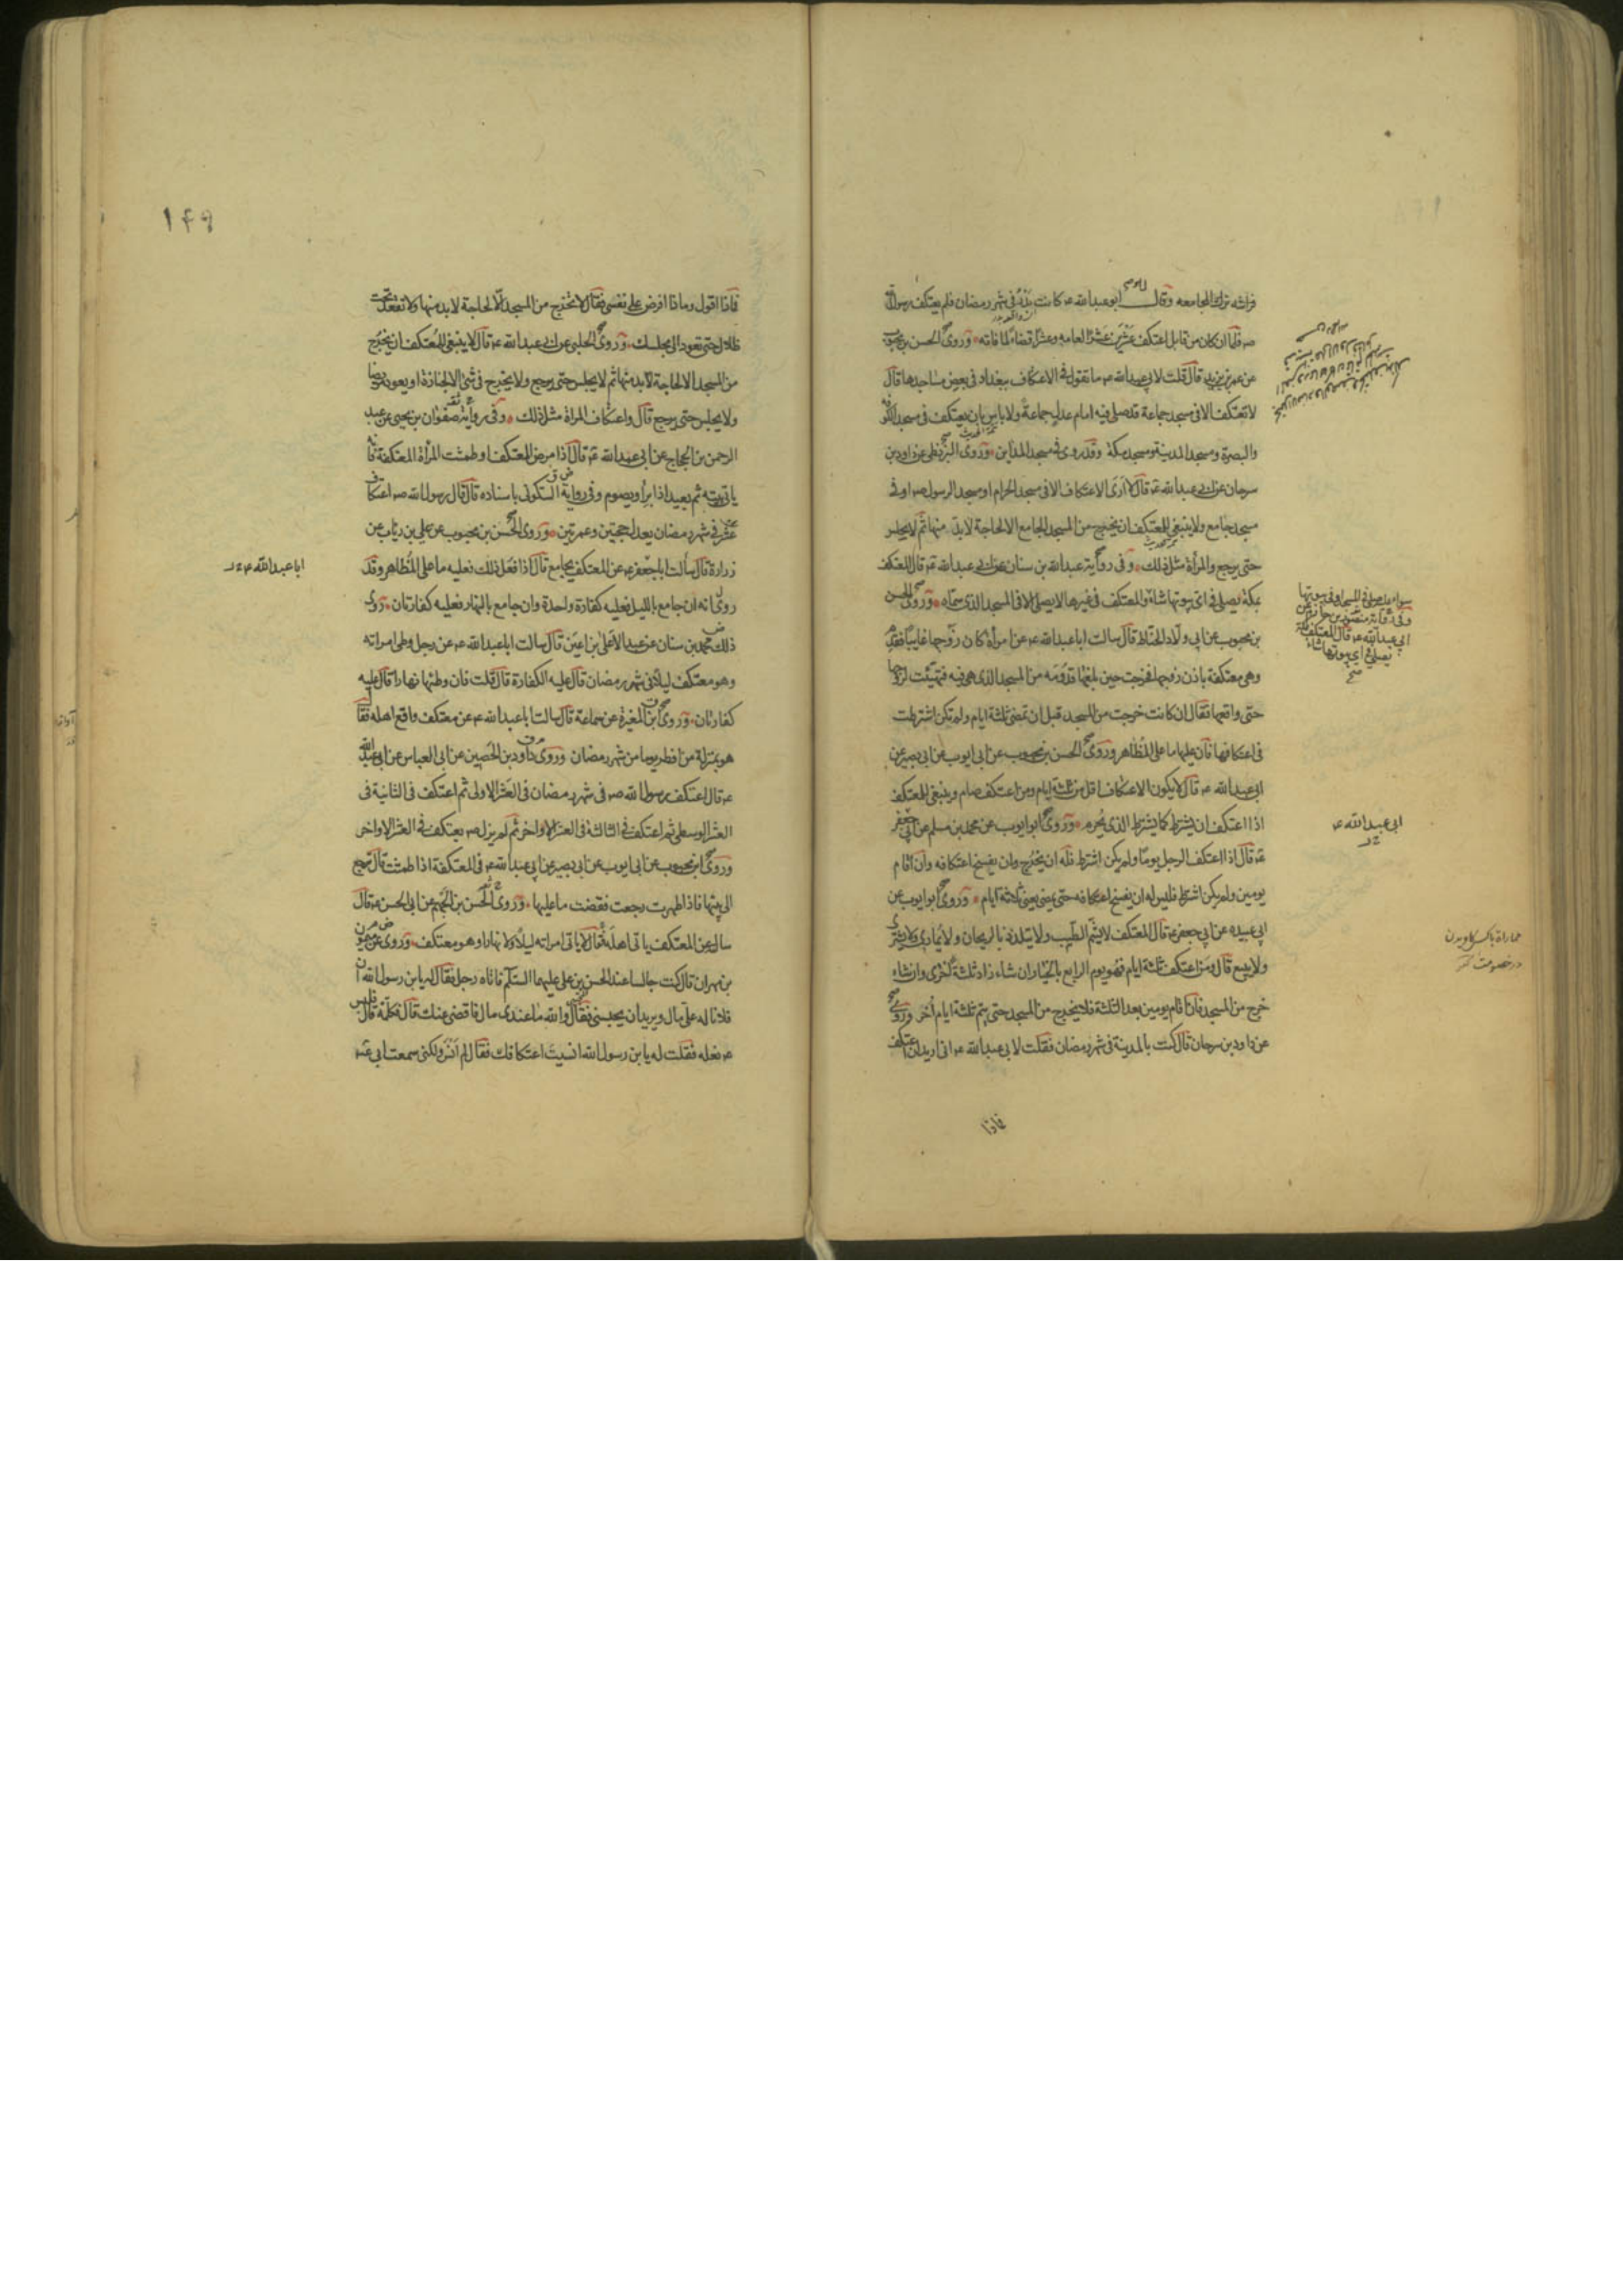 فراشه ترك المجامعه وقال ابو عبد الله ع كانت بدر في شهر رمضان فلم يعتكف رسول الله
ص فلما ان كان من قابل اعتكف عشرين عشرا لعامه وعشرا قضاء لما فاته وروى الحسن بن محبوب
عن عمر بن يزيد قال قلت لابي عبد الله ع ما تقول في الاعتكاف ببغداد في بعض مساجدها قال
لا تعتكف الا في مسجد جماعة قد صلى فيه امام عدل جماعة ولا باس بان يعتكف في مسجد الكوفه
والبصرة ومسجد المدينة ومسجد مكة وقد روى في مسجد المداين وروى البزنطى عن داود بن
سرحان عن ابي عبد الله ع قال لا ارى الاعتكاف الا في مسجد الحرام او مسجد الرسول ص او في
مسجد جامع ولا ينبغي للمعتكف ان يخرج من المسجد الجامع الا لحاجة لابد منها ثم لا يجلس
حتى يرجع والمرأة مثل ذلك وفي رواية عبد الله بن سنان عن ابي عبد الله ع قال المعتكف
بمكة يصلى في اى بيوتها شاء والمعتكف في غيرها لا يصلى الا في المسجد الذى سماه وروى الحسن
بن محبوب عن ابي ولاد الحناط قال سالت ابا عبد الله ع عن امرأة كان زوجها غايبا فقدم
وهى معتكفة باذن زوجها فخرجت حين بلغها قدومه من المسجد الذى هى فيه فتهيئت لزوجها
حتى واقعها فقال ان كانت خرجت من المسجد قبل ان تمضى ثلثة ايام ولم تكن اشترطت
في اعتكافها فان عليها ما على المظاهر وروى الحسن بن محبوب عن ابى ايوب عن ابى بصير عن
ابى عبد الله ع قال لا يكون الاعتكاف اقل من ثلثة ايام ومن اعتكف صام وينبغي للمعتكف
اذا اعتكف ان يشترط كما يشترط الذى يحرم وروى ابو ايوب عن محمد بن مسلم عن ابى جعفر
ع قال اذا اعتكف الرجل يوما ولم يكن اشترط فله ان يخرج وان يفسخ اعتكافه وان اقام
يومين ولم يكن اشترط فليس له ان يفسخ اعتكافه حتى يمضى ثلاثة ايام وروى ابو ايوب عن
ابى عبيده عن ابى جعفر ع قال المعتكف لا يشم الطيب ولا يتلذذ بالريحان ولا يمارى ولا يشترى
ولا يبيع قال ومن اعتكف ثلثة ايام فهو يوم الرابع بالخيار ان شاء زاد ثلثة اخرى وان شاء
خرج من المسجد فان اقام يومين بعد الثلثة فلا يخرج من المسجد حتى يتم ثلثة ايام أخر وروى
عن داود بن سرحان قال كنت بالمدينة في شهر رمضان فقلت لابى عبد الله ع انى اريد ان اعتكف
فاذا
سواء صلى في المسجد او في بيوتها
وفي رواية منصور بن حازم عن
ابى عبد الله ع قال المعتكف بمكة
يصلى في اى بيوتها شاء
صح
ابى عبد الله ع
۱۴۹
فاذا اقول وماذا افرض على نفسى فقال لا تخرج من المسجد الا لحاجة لابد منها ولا تقعد تحت
ظلال حتى تعود الى مجلسك وروى الحلبى عن ابى عبد الله ع قال لا ينبغى للمعتكف ان يخرج
من المسجد الا لحاجة لابد منها ثم لا يجلس حتى يرجع ولا يخرج في شئ الا لجنازة او يعود مريضا
ولا يجلس حتى يرجع قال واعتكاف المراة مثل ذلك وفي رواية صفوان بن يحيى عن عبد
الرحمن بن الحجاج عن ابى عبد الله ع قال اذا مرض المعتكف او طمثت المرأة المعتكفة فانه
ياتى بيته ثم يعيد اذا برأ ويصوم وفى رواية السكونى باسناده قال قال رسول الله ص اعتكاف
عشر في شهر رمضان يعدل حجتين وعمرتين وروى الحسن بن محبوب عن على بن رئاب عن
زرارة قال سألت ابا جعفر ع عن المعتكف يجامع قال اذا فعل ذلك فعليه ما على المظاهر وقد
روى انه ان جامع بالليل فعليه كفارة واحدة وان جامع بالنهار فعليه كفارتان روى
ذلك محمد بن سنان عن عبد الاعلى بن اعين قال سالت ابا عبد الله ع عن رجل وطى امراته
وهو معتكف ليلا في شهر رمضان قال عليه الكفارة قال قلت فان وطئها نهارا قال عليه
كفارتان وروى ابن المغيرة عن سماعة قال سالت ابا عبد الله ع عن معتكف واقع اهله فقال
هو بمنزلة من افطر يوما من شهر رمضان وروى داود بن الحصين عن ابى العباس عن ابى عبد الله
ع قال اعتكف رسول الله ص في شهر رمضان في العشر الاولى ثم اعتكف في الثانية في
العشر الوسطى ثم اعتكف في الثالثة في العشر الاواخر ثم لم يزل ص يعتكف في العشر الاواخر
وروى ابن محبوب عن ابى ايوب عن ابى بصير عن ابى عبد الله ع في المعتكفة اذا طمثت قال ترجع
الى بيتها فاذا طهرت رجعت فقضت ما عليها وروى الحسن بن الجهم عن ابى الحسن ع قال
سالته عن المعتكف ياتى اهله فقال لا ياتى امراته ليلا ولا نهارا وهو معتكف وروى عن ميمون
بن مهران قال كنت جالسا عند الحسن بن على عليهما السلم فاتاه رجل فقال له يا بن رسول الله ان
فلانا له على مال ويريد ان يحبسنى فقال والله ما عندى مال فاقضى عنك قال فكلمه قال فلبس
ع نعله فقلت له يا بن رسول الله انسيت اعتكافك فقال لم انس ولكنى سمعت ابى ع
ابا عبد الله ع